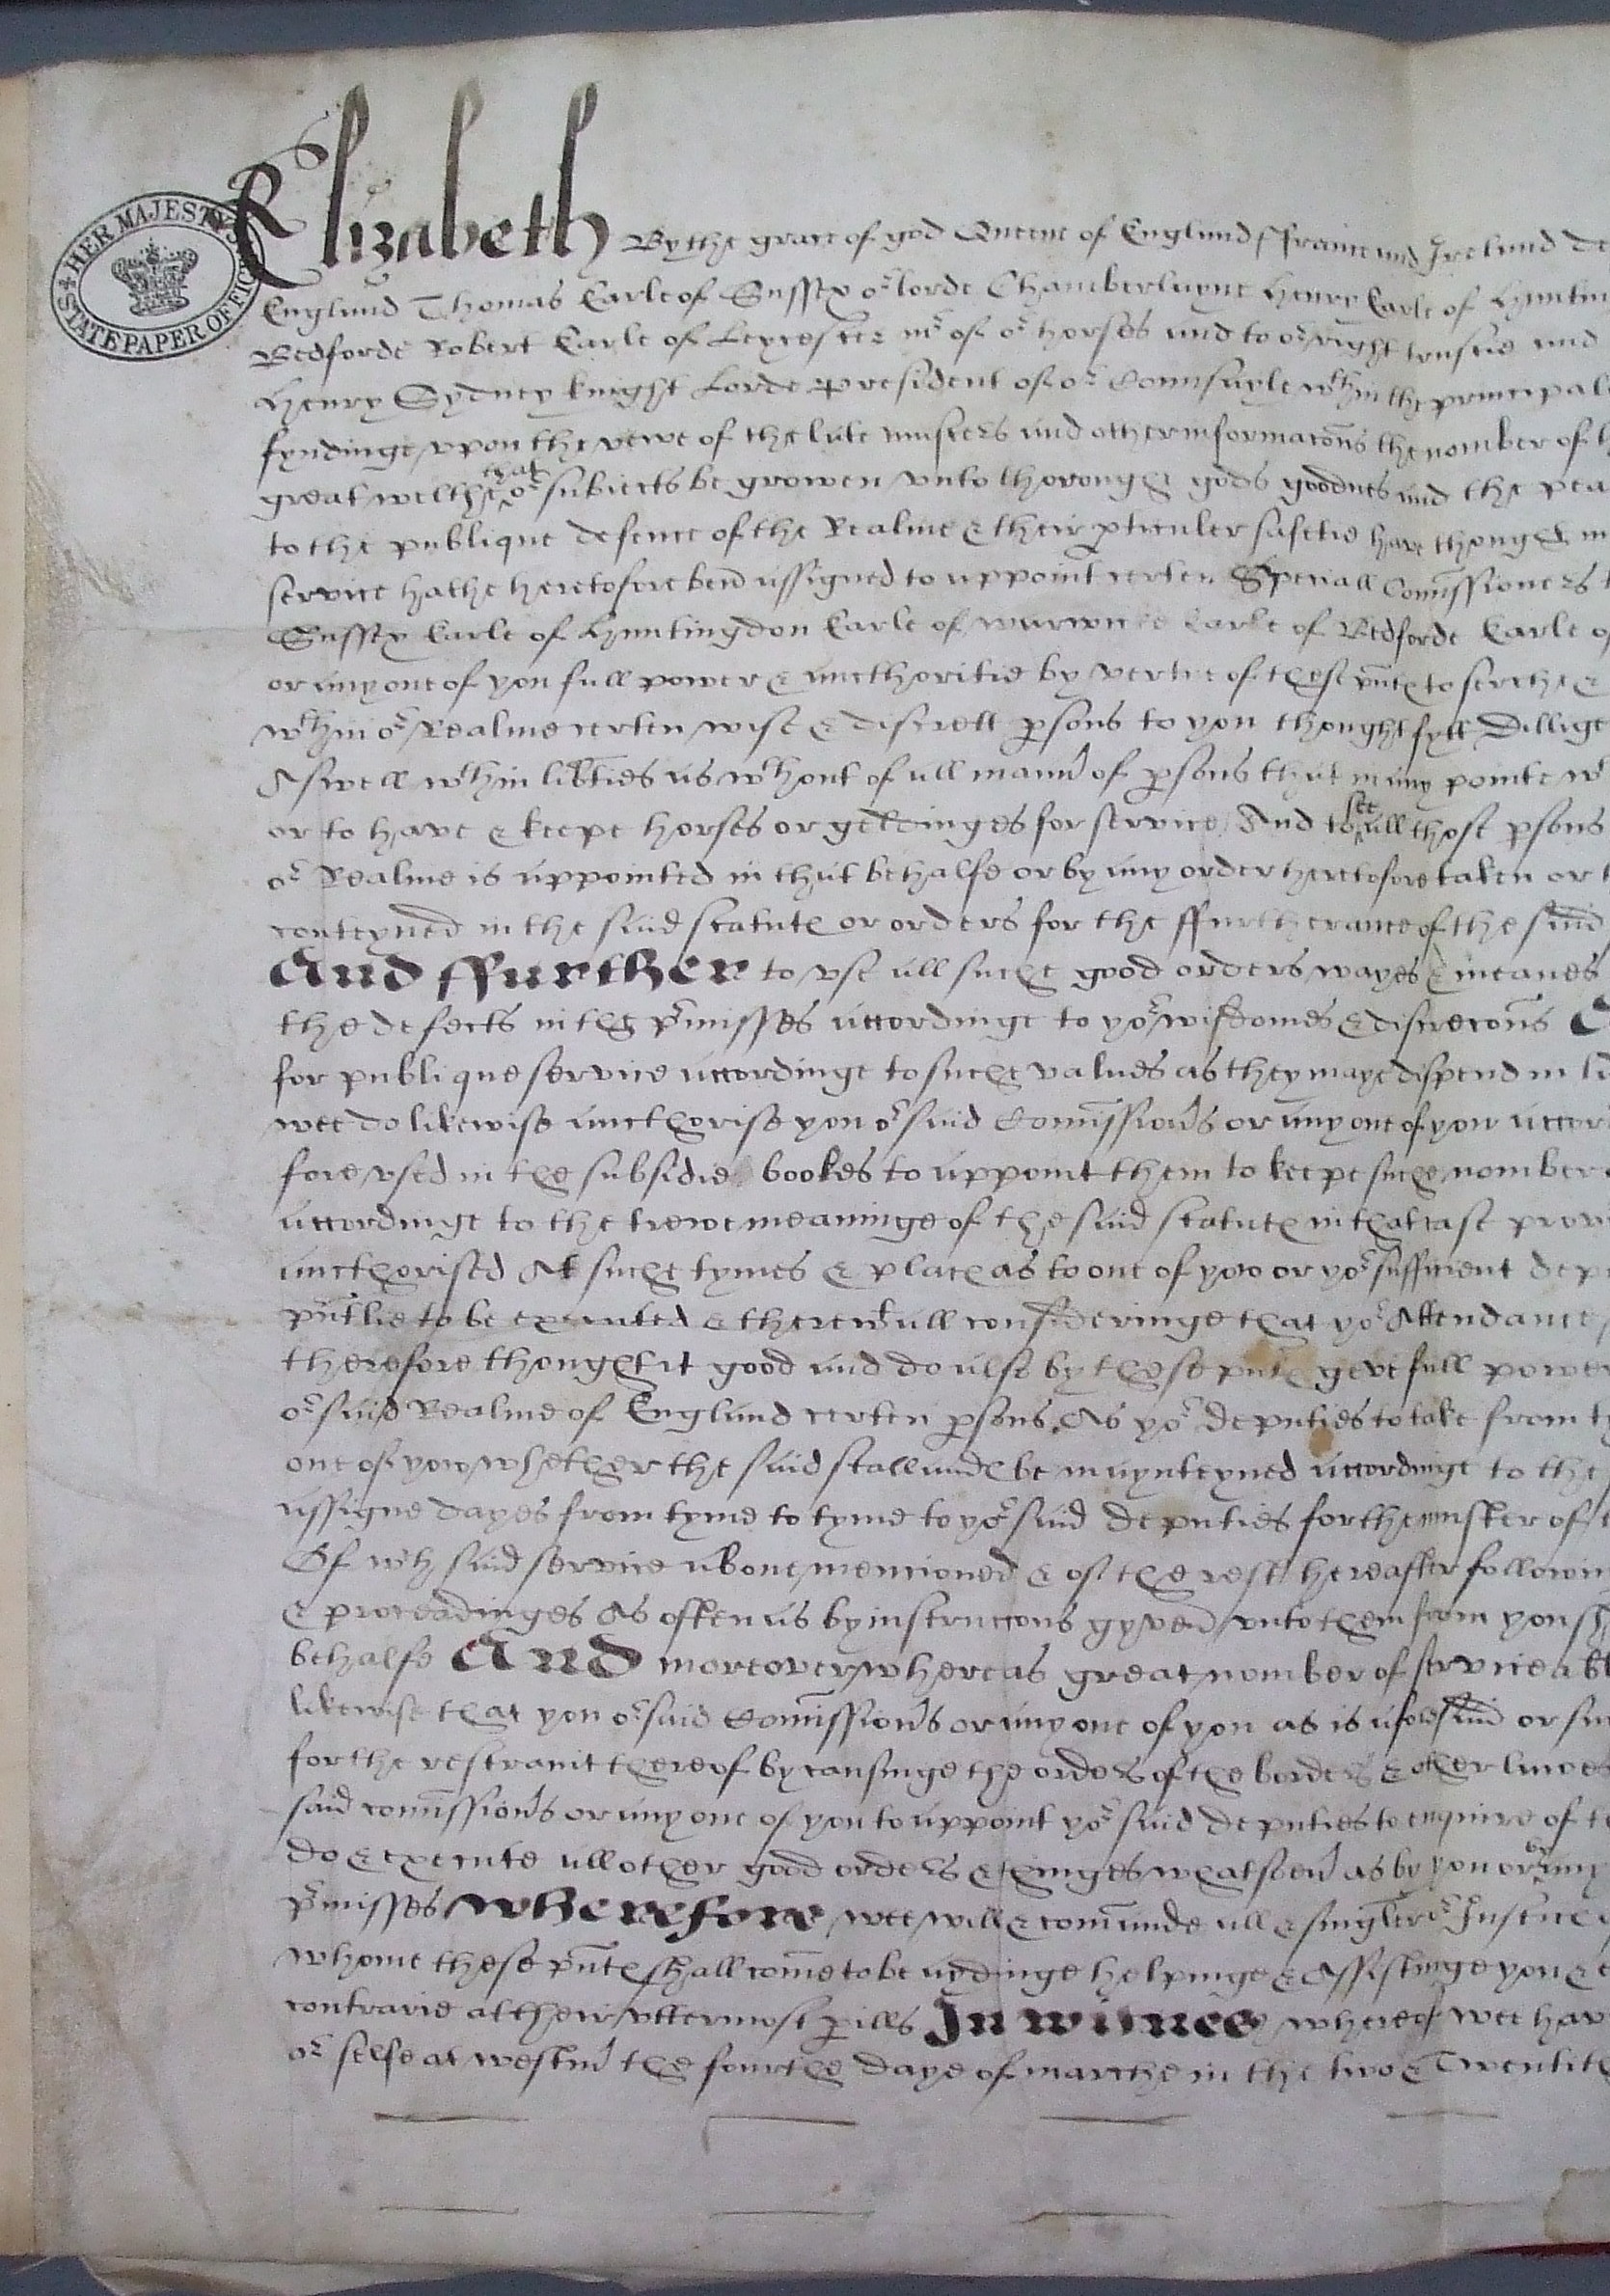 HER MAJESTY'S STATE PAPER OFFICE
Elizabeth By the grace of god Queene of England ffraunce and Ireland de
England Thomas Earle of Sussex or lorde Chamberlayne Henry Earle of Huntin
Bedforde Robert Earle of Leycester mr of or horses and to or right trustie and
Henry Sydney knight Lorde President of or Counsayle wthin the principal
fyndinge vpon the vewe of the late musters and other informacons the nomber of h
great welthe that or subiects be growen vnto thorough gods goodnes and the pea
to the publique defence of the Realme & their pticuler safetie have thought m
service hathe heretofore bene assigned to appoint certen Speciall Comissioners t
Sussex Earle of Huntingdon Earle of warwick Earle of Bedforde Earle o
or any one of you full power & aucthoritie by vertue of these pnts to serche &
wthin or Realme certen wise & discrett psons to you thought fytt Dillige
Aswell wthin libties as wthout of all mann of psons that in any pointe w
or to have & keepe horses or geldinges for service, And to see all those psons
or Realme is appointed in that behalfe or by any order heretofore taken or
conteyned in the said statute or orders for the ffurtherance of the said
And ffurther to vse all suche good orders wayes & meanes
the defects in the pmisses accordinge to yor wisdomes & discrecons
for publique service accordinge to suche values as they maye dispend in l
wee do likewise aucthorise you or said Comissions or any one of you accor
fore vsed in the subsidie bookes to appoint them to keepe suche nomber
accordinge to the trewe meaninge of the said statute in that case prov
aucthorised At suche tymes & places as to one of yow or yor sufficient dep
pntlie to be executed & therewt all consideringe that yor Attendance
therefore thought it good and do also by these pnts geve full power
or said Realme of England certen psons As yor deputies to take from ty
one of yow whether the said stallands be maynteyned accordinge to the
assigne dayes from tyme to tyme to yor said deputies for the muster of
Of wch said service above mencioned & of the rest hereafter followin
& proceadinges As often as by instruccons gyven vnto them from you sh
behalfe And moreover whereas great nomber of serviceabl
likewise that you or said Comissions or any one of you as is aforesaid or su
for the restraint thereof by causinge the orders of the borders & other lawes
said comissions or any one of you to appoint yor said deputies to enquire of t
do & execute all other good orders & thinges whatsoev as by you or by any
pmisses wherefore wee will & comaunde all & singler or Justice
whome these pnts shall come to be aydinge helpinge & Assistinge you &
contrarie at their vttermost pills In witnes whereof wee hav
or selfe at westm the fourthe daye of marche in the two & Twentith